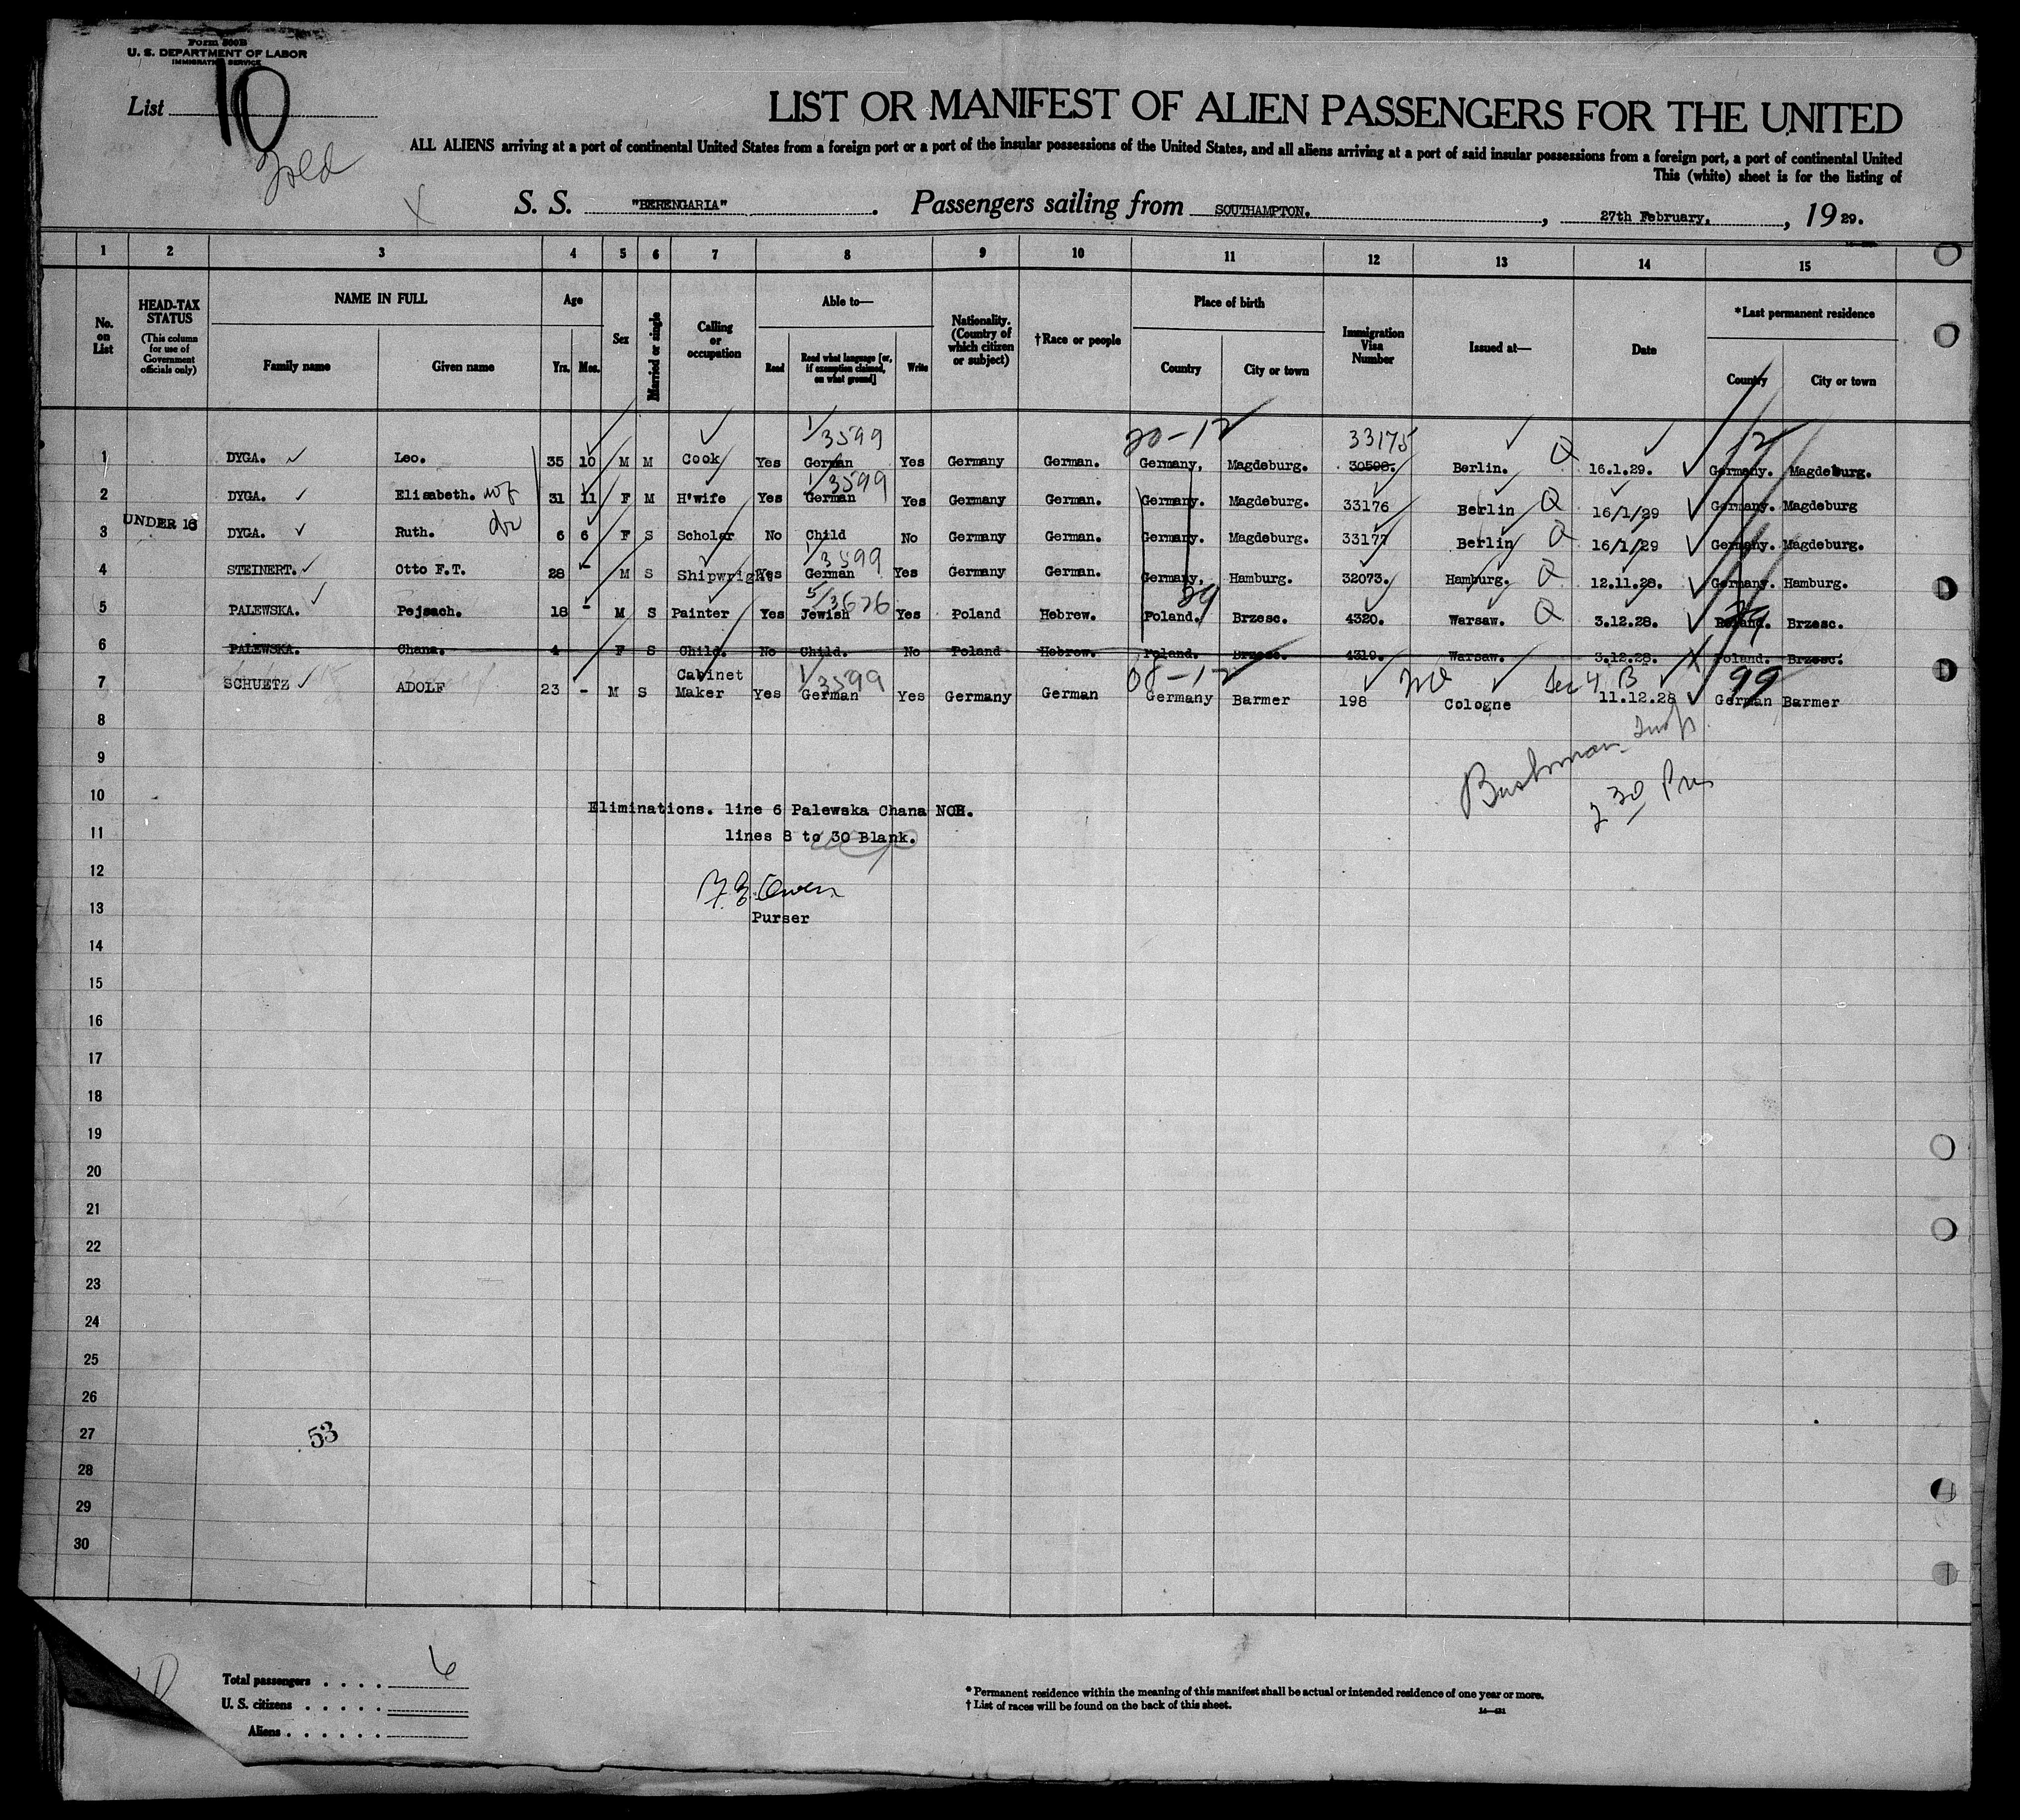 Form 500B
U. S. DEPARTMENT OF LABOR
IMMIGRATION SERVICE
List 10
LIST OR MANIFEST OF ALIEN PASSENGERS FOR THE UNITED
ALL ALIENS arriving at a port of continental United States from a foreign port or a port of the insular possessions of the United States, and all aliens arriving at a port of said insular possessions from a foreign port, a port of continental United
This (white) sheet is for the listing of
S. S. "BERENGARIA" . Passengers sailing from SOUTHAMPTON. , 27th February. , 19 29.
1 2 3 4 5 6 7 8 9 10 11 12 13 14 15
No. on List
HEAD-TAX STATUS (This column for use of Government officials only)
NAME IN FULL
Family name Given name
Age
Yrs. Mos.
Sex
Married or single
Calling or occupation
Able to—
Read Read what language [or, if exemption claimed, on what ground] Write
Nationality. (Country of which citizen or subject)
†Race or people
Place of birth
Country City or town
Immigration Visa Number
Issued at—
Date
*Last permanent residence
Country City or town
1/3599 20-12 33175 12
1 DYGA. Leo. 35 10 M M Cook Yes German Yes Germany German. Germany. Magdeburg. 30598. Berlin. Q 16.1.29. Germany. Magdeburg.
1/3599
2 DYGA. Elisabeth. wf 31 11 F M H'wife Yes German Yes Germany German. Germany. Magdeburg. 33176 Berlin Q 16/1/29 Germany. Magdeburg
UNDER 16
3 DYGA. Ruth. 6 6 F S Scholar No Child No Germany German. Germany. Magdeburg. 33177 Berlin Q 16/1/29 Germany. Magdeburg.
1/3599
4 STEINERT. Otto F.T. 28 - M S Shipwright Yes German Yes Germany German. Germany. Hamburg. 32073. Hamburg. Q 12.11.28. Germany. Hamburg.
5/3626 29
5 PALEWSKA. Pejsach. 18 - M S Painter Yes Jewish Yes Poland Hebrew. Poland. Brzesc. 4320. Warsaw. Q 3.12.28. Poland. Brzesc.
6 PALEWSKA. Chana. 4 F S Child. No Child. No Poland Hebrew. Poland. Brzesc. 4319. Warsaw. 3.12.28. Poland. Brzesc.
1/3599 08-12 Sec 4 B 99
7 SCHUETZ ADOLF 23 - M S Cabinet Maker Yes German Yes Germany German Germany Barmer 198 Cologne 11.12.28 German Barmer
8
Bushman Insp.
9
2 30 Pm
10
Eliminations. line 6 Palewska Chana NOB.
11
lines 8 to 30 Blank.
12
13
Purser
14
15
16
17
18
19
20
21
22
23
24
25
26
27
53
28
29
30
Total passengers . . . . 6
U. S. citizens . . . . .
Aliens . . . . . .
* Permanent residence within the meaning of this manifest shall be actual or intended residence of one year or more.
† List of races will be found on the back of this sheet.